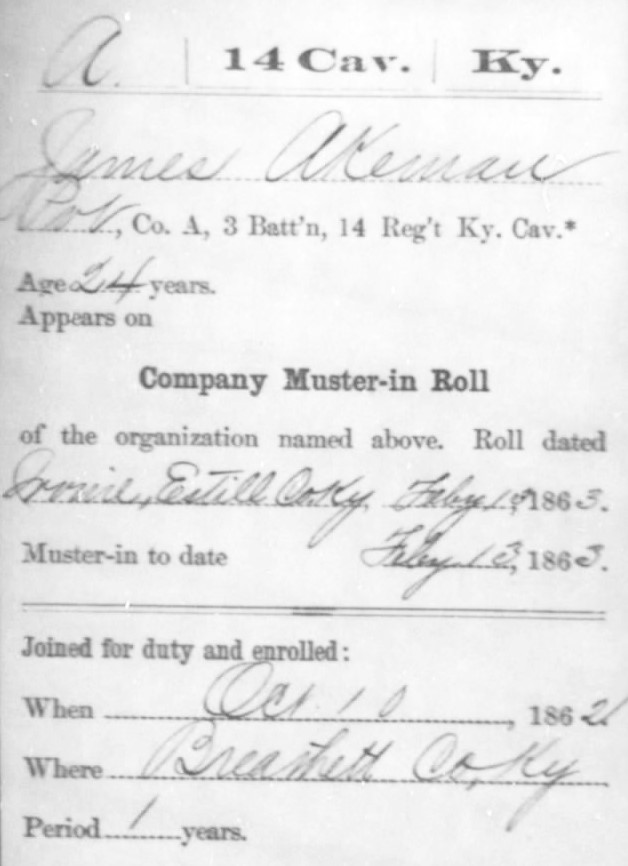 A. | 14 Cav. | Ky.
James Akeman
Pvt, Co. A, 3 Batt'n, 14 Reg't Ky. Cav.*
Age 24 years.
Appears on
Company Muster-in Roll
of the organization named above. Roll dated
Irvine, Estill Co Ky, Feby 13, 1863.
Muster-in to date Feby 13, 1863.
Joined for duty and enrolled:
When Oct. 10, 1862.
Where Breathett Co, Ky
Period 1 years.